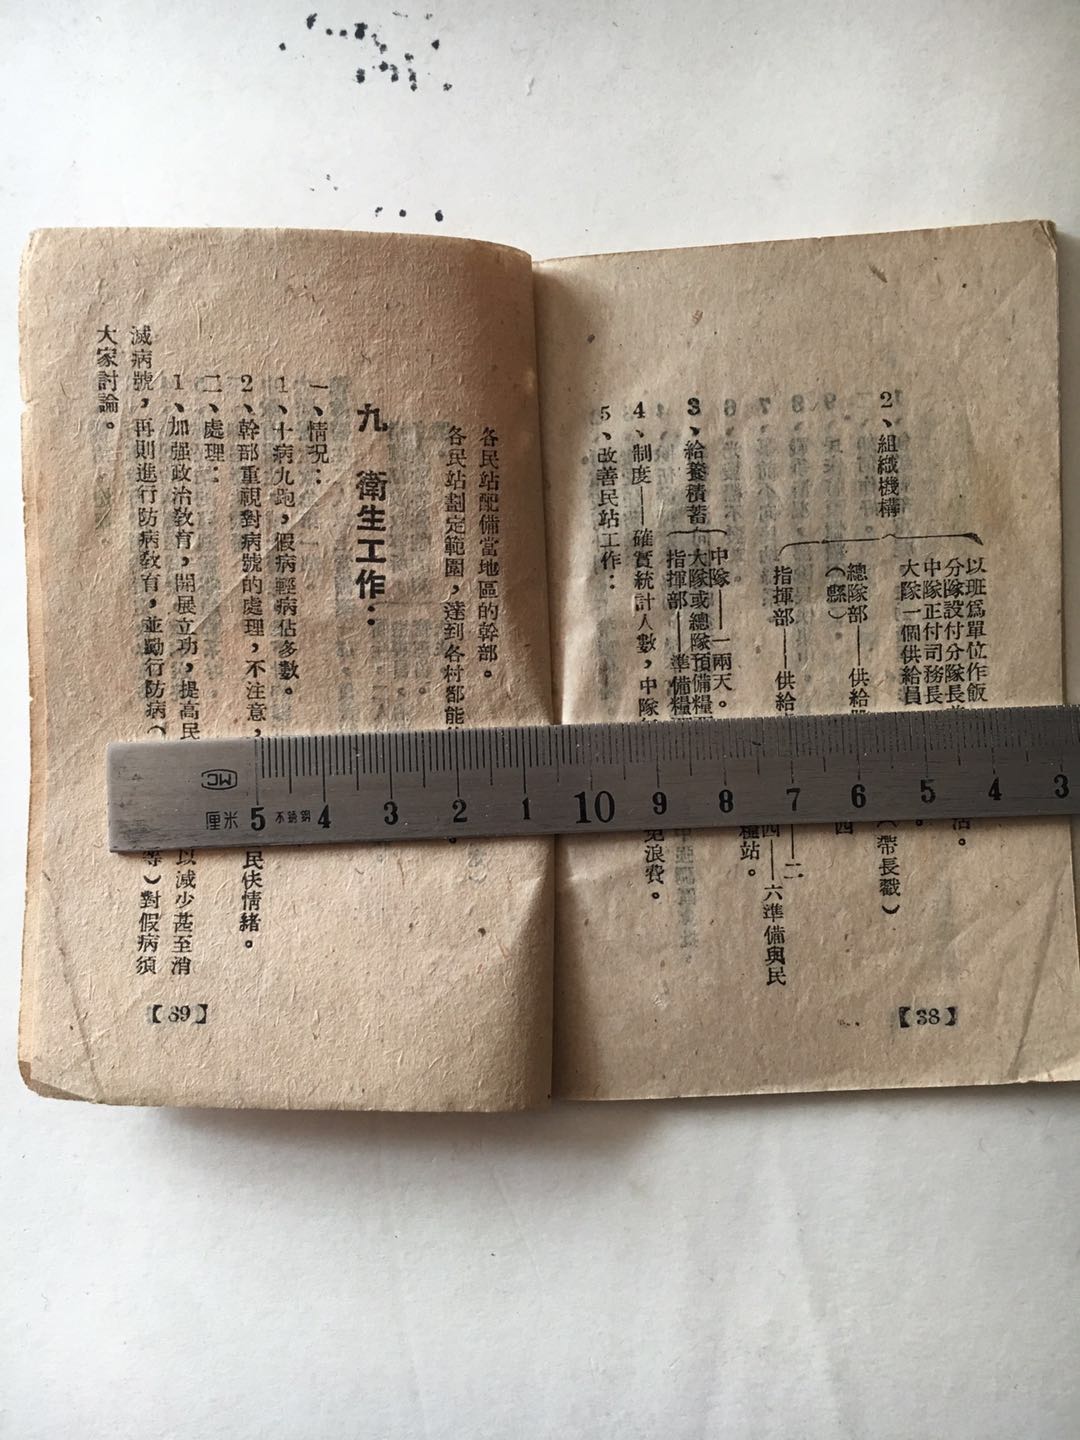 2、組織機構
以班爲單位作飯
活。
分隊設付分隊長
中隊正付司務長
大隊一個供給員
(帶長戳)
總隊部——供給
(縣)
四
指揮部——供給
二
四——六準備與民
3、給養積蓄
中隊——一兩天。
大隊或總隊預備糧
糧站。
指揮部——準備糧
4、制度——確實統計人數，中隊
免浪費。
5、改善民站工作：
【38】
各民站配備當地區的幹部。
各民站劃定範圍，達到各村都能
九 衛生工作：
一、情况：
1、十病九跑，假病輕病佔多數。
2、幹部重視對病號的處理，不注意，
民伕情緒。
二、處理：
1、加强政治教育，開展立功，提高民
以减少甚至消
滅病號，再則進行防病教育，並勵行防病(
等)對假病須
大家討論。
【39】
MC
厘米 5 不銹鋼 4 3 2 1 10 9 8 7 6 5 4 3